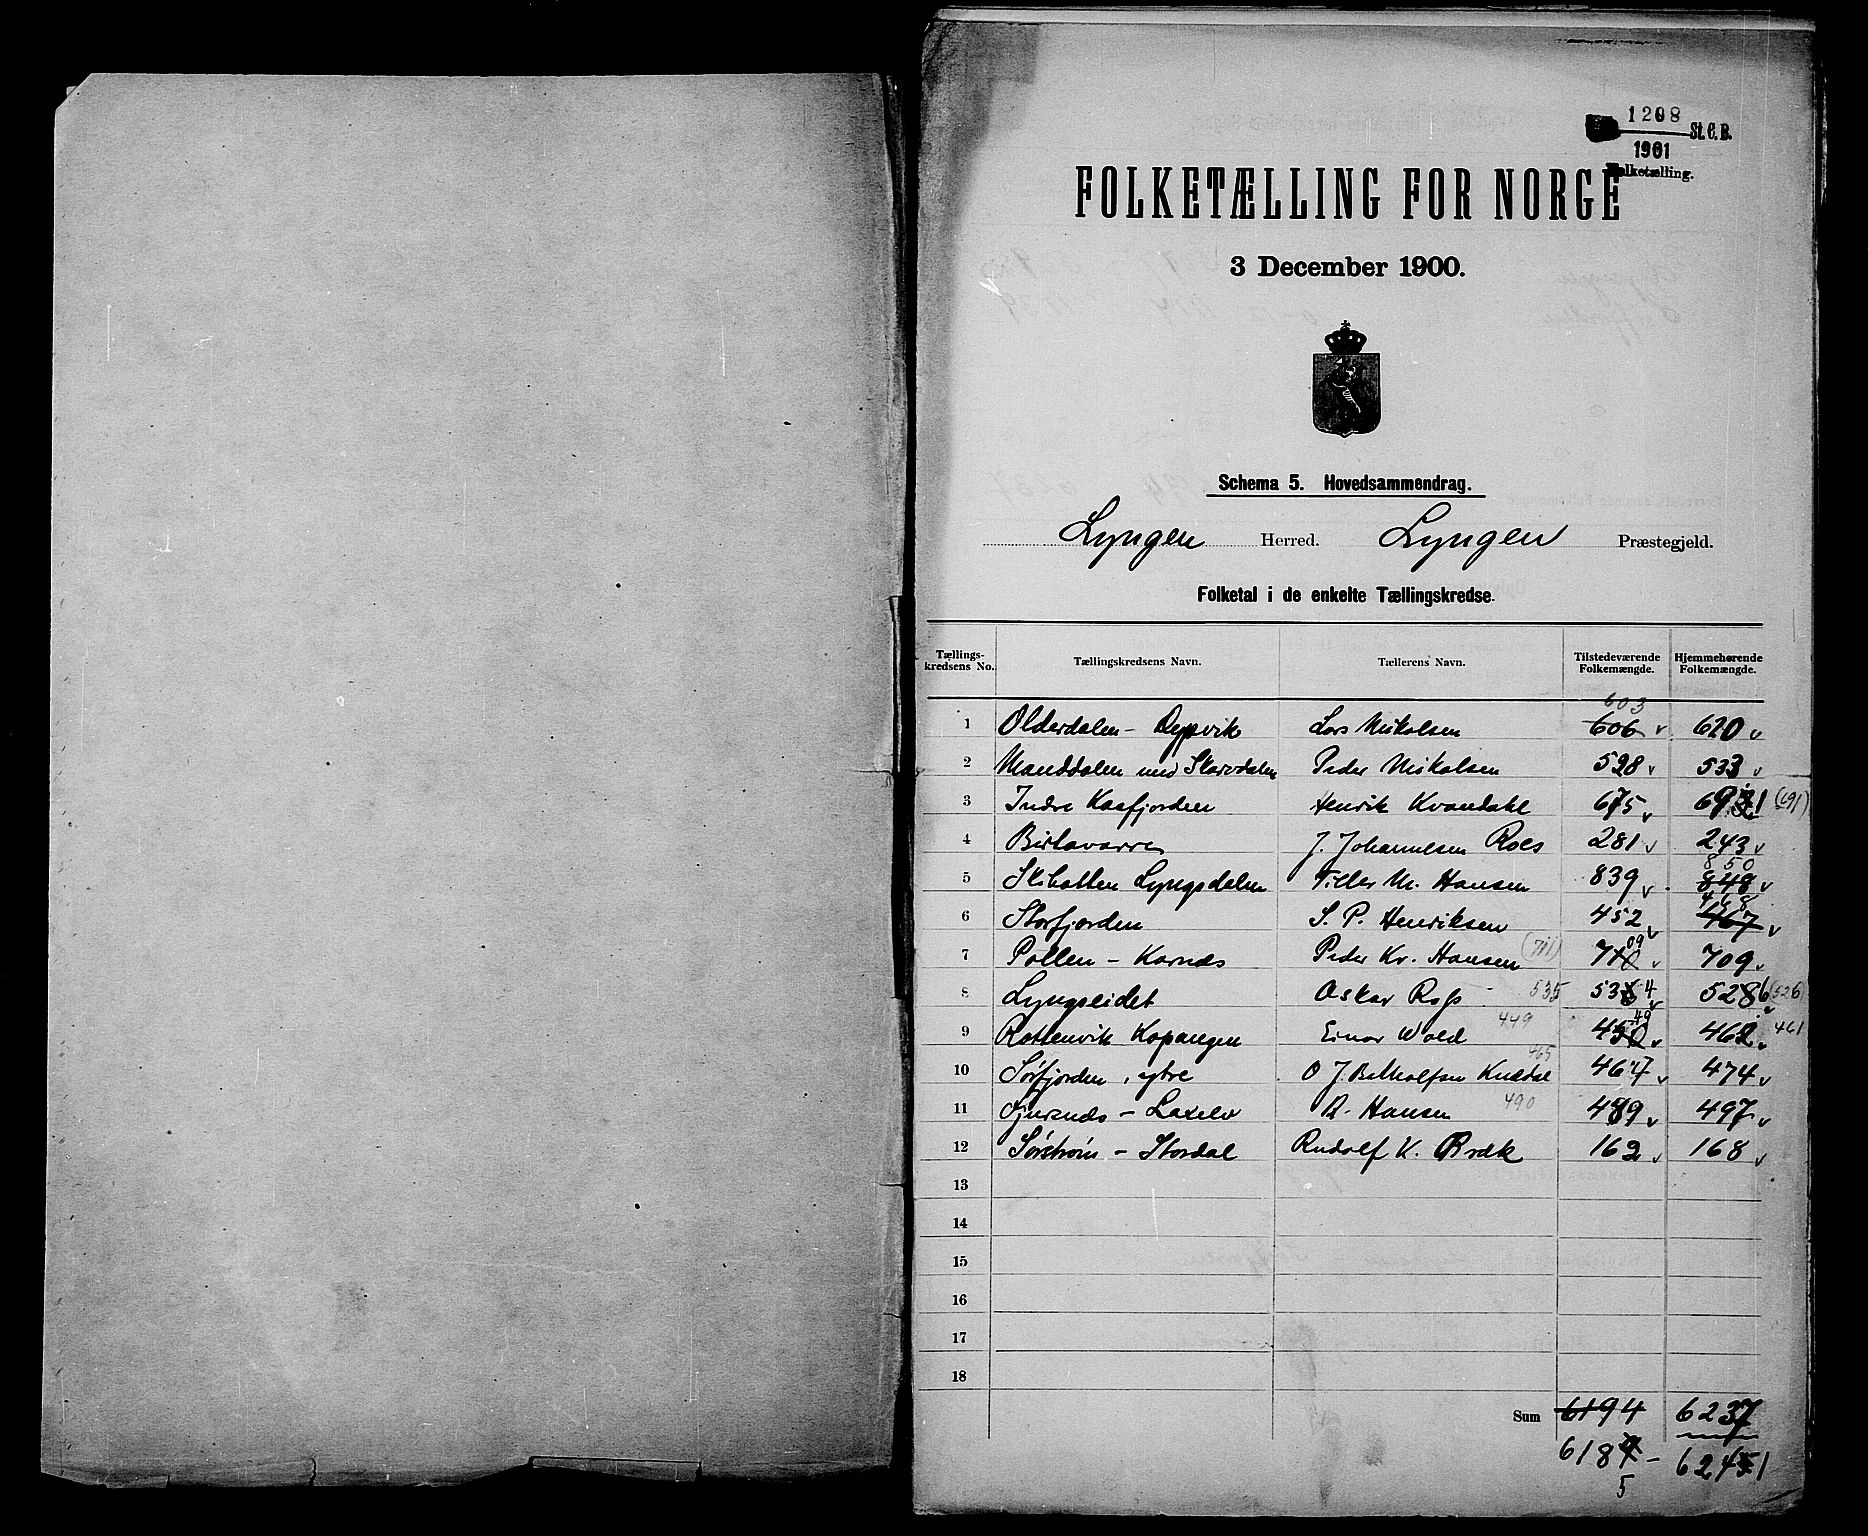 1208
St. C. B.
1901
Folketælling.
FOLKETÆLLING FOR NORGE
3 December 1900.
Schema 5. Hovedsammendrag.
Lyngen Herred. Lyngen Præstegjeld.
Folketal i de enkelte Tællingskredse.
Tællingskredsens No. Tællingskredsens Navn. Tællerens Navn. Tilstedeværende Folkemængde. Hjemmehørende Folkemængde.
603
1 Olderdalen - Dypvik Lars Nikolsen 606 620
2 Manddalen med Skarvdalen Peder Nikolsen 528 533
3 Indre Kaafjorden Henrik Kvandahl 675 691 (691)
4 Birtavarre J. Johannesen Roes 281 243
850
5 Skibotten Lyngsdalen M. Hansen 839 848
468
6 Storfjorden S. P. Henriksen 452 467
7 Pollen - Karnæs Peder Kr. Hansen (711) 710 09 709
8 Lyngseidet Oskar Ross 535 534 526 (526)
9 Rottenvik Kopangen Einar Wold 449 450 49 462 461
10 Sørfjorden, ytre O J. 465 467 474
11 Gjøvenæs - Lakselv R. Hansen 490 489 497
12 Sørstrøm - Stordal Rudolf K. Bræk 162 168
13
14
15
16
17
18
Sum 6194 6237
6187 - 6241
5